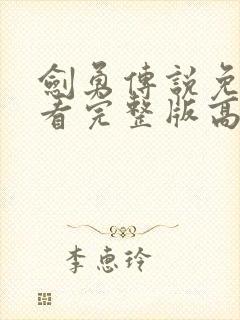 劍勇傳說免
看完整版高
李惠玲